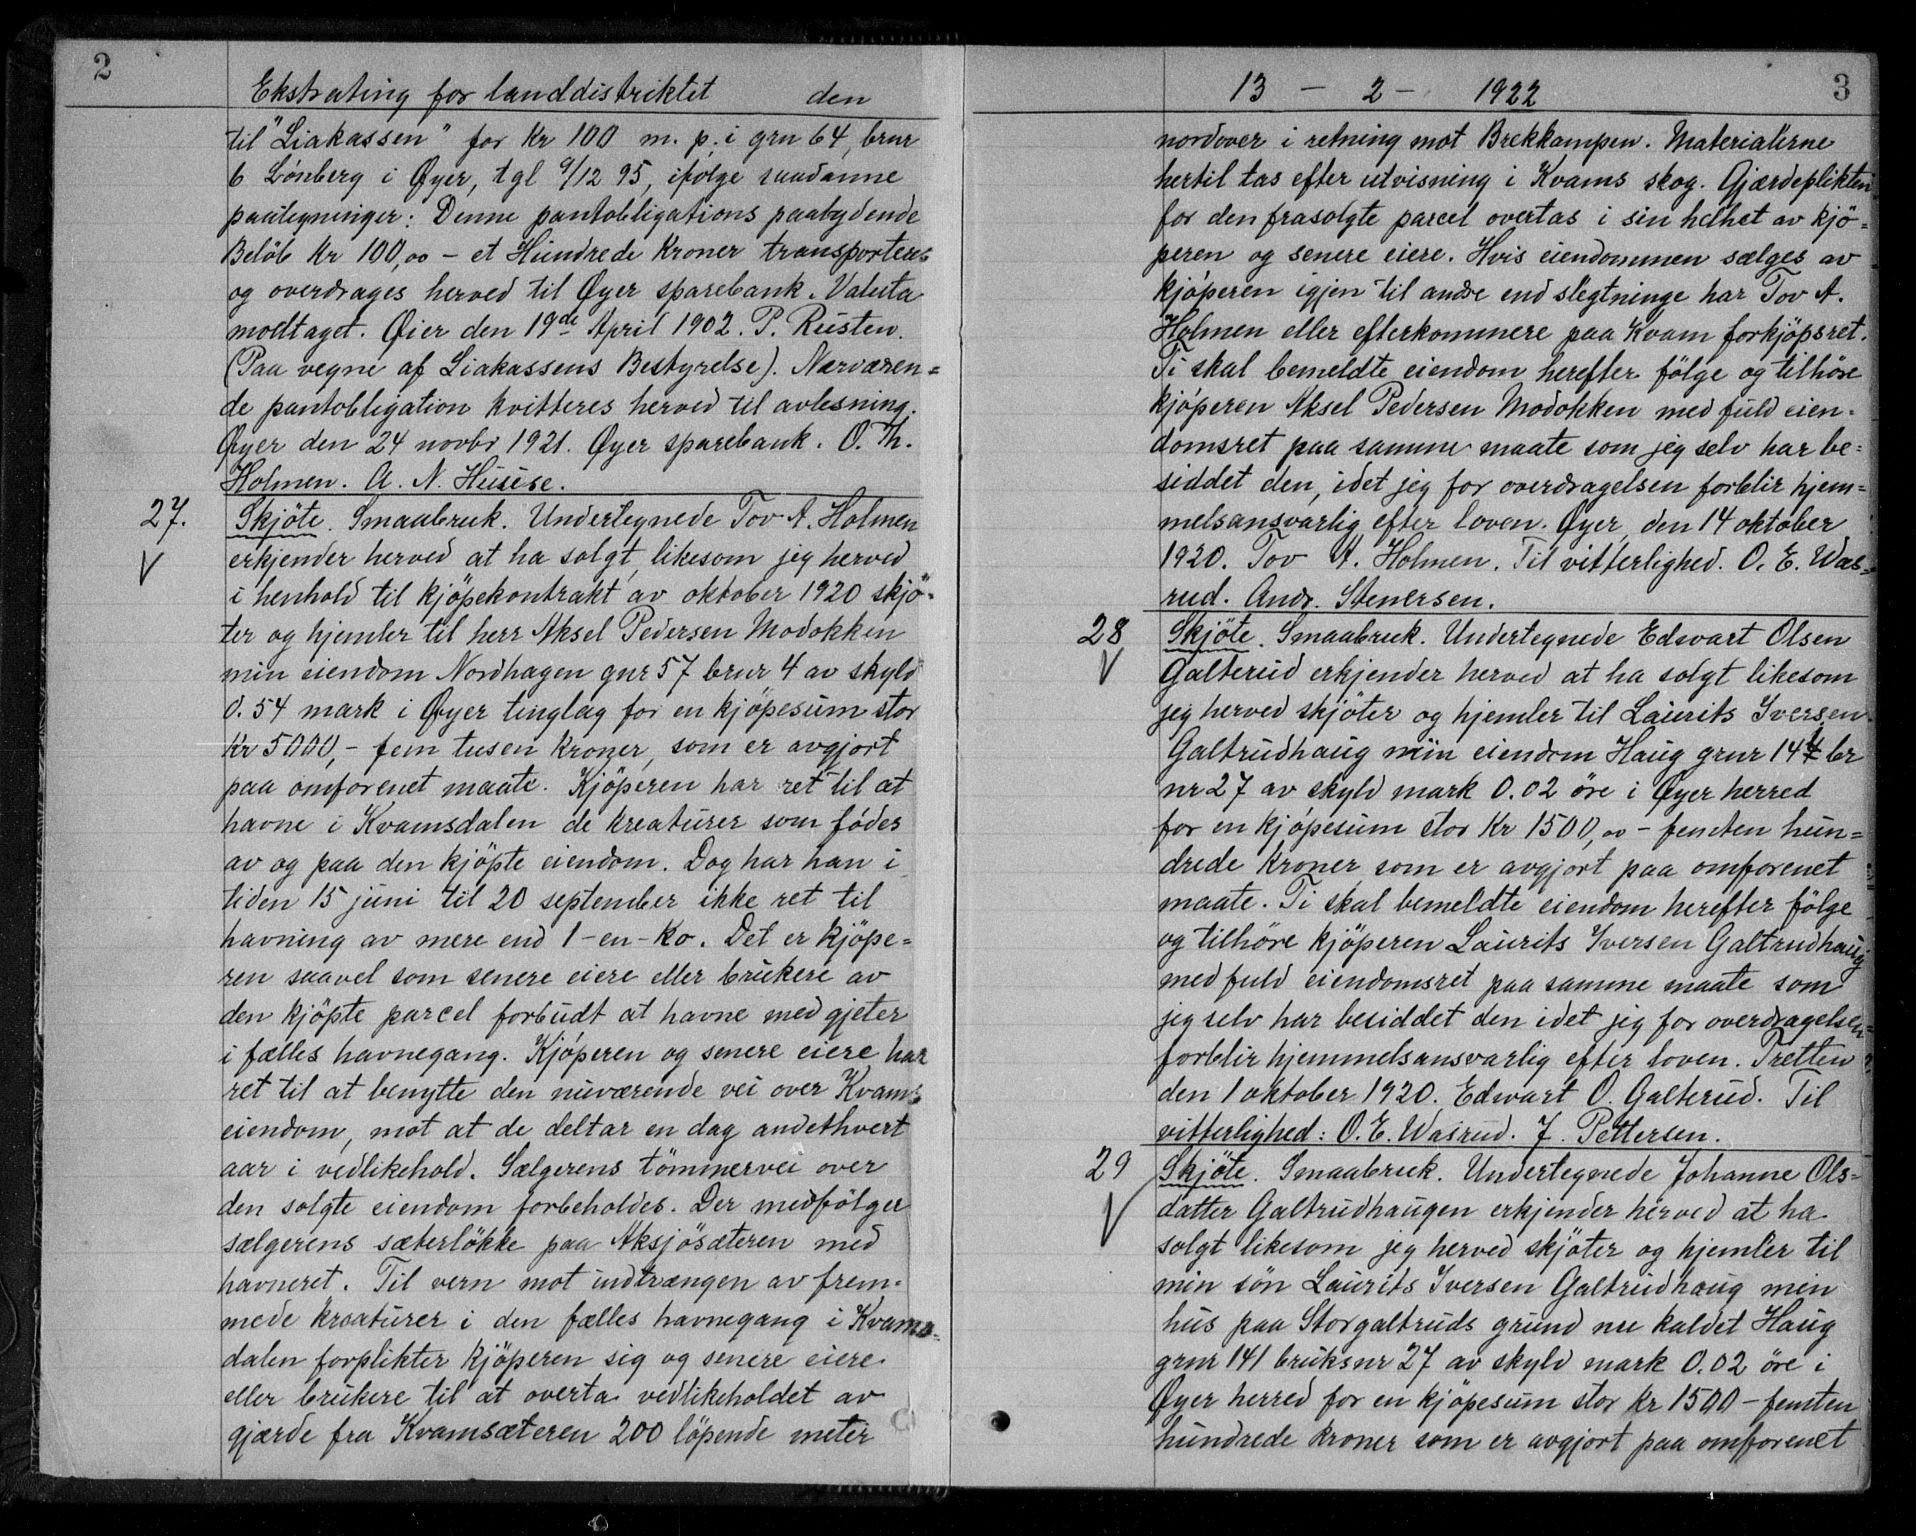 2
Ekstrating for landdistriktet den
til "Liakassen" for Kr 100 m. p. i gnr 64, brnr
6 Lønberg i Øyer, tgl 9/12 95, ifølge saadanne
paategninger: Denne pantobligations paabydende
Beløb Kr 100,00 - et Hundrede Kroner transporteres
og overdrages herved til Øyer sparebank. Valuta
modtaget. Øier den 19de April 1902. P. Rusten.
(Paa vegne af Liakassens Bestyrelse). Nærværen=
de pantobligation kvitteres herved til avlesning.
Øyer den 24 novbr 1921. Øyer sparebank. O. Th.
Holmen. A. N. Huuse.
27. Skjöte. Smaabruk. Undertegnede Tov A. Holmen
V erkjender herved at ha solgt, likesom jeg herved
i henhold til kjöpekontrakt av oktober 1920 skjö-
ter og hjemler til herr Aksel Pedersen Modokken
min eiendom Nordhagen gnr 57 brnr 4 av skyld
0.54 mark i Øyer tinglag for en kjöpesum stor
Kr 5000,- fem tusen Kroner, som er avgjort
paa omforenet maate. Kjöperen har ret til at
havne i Kvamsdalen de kreaturer som födes
av og paa den kjöpte eiendom. Dog har han i
tiden 15 juni til 20 september ikke ret til
havning av mere end 1-en-Ko. Det er kjöpe=
ren saavel som senere eiere eller brukere av
den kjöpte parcel forbudt at havne med gjeter
i fælles havnegang. Kjöperen og senere eiere har
ret til at benytte den nuværende vei over Kvams
eiendom, mot at de deltar en dag andethvert
aar i vedlikehold. Sælgerens tömmervei over
den solgte eiendom forbeholdes. Der medfölger
sælgerens sæterlökke paa Aksjösæteren med
havneret. Til vern mot indtrængen av frem-
mede kreaturer i den fælles havnegang i Kvams-
dalen forplikter kjöperen sig og senere eiere
eller brukere til at overta vedlikeholdet av
gjærde fra Kvamsæteren 200 löpende meter
13 - 2 - 1922
3
nordover i retning mot Brekkampen. Materialerne
hertil tas efter utvisning i Kvams skog. Gjærdeplikten
for den frasolgte parcel overtas i sin helhet av kjö=
peren og senere eiere. Hvis eiendommen sælges av
kjöperen igjen til andre end slegtninge har Tov A.
Holmen eller efterkommere paa Kvam forkjöpsret.
Ti skal bemeldte eiendom herefter fölge og tilhöre
kjöperen Aksel Pedersen Modokken med fuld eien-
domsret paa samme maate som jeg selv har be=
siddet den, idet jeg for overdragelsen forblir hjem=
melsansvarlig efter loven. Øyer, den 14 oktober
1920. Tov A. Holmen. Til vitterlighed. O. E. Was=
rud. Andr. Stenersen.
28 Skjöte. Smaabruk. Undertegnede Edvart Olsen
V Galterud erkjender herved at ha solgt likesom
jeg herved skjöter og hjemler til Laurits Iversen
Galtrudhaug min eiendom Haug gnr 141 br
nr 27 av skyld mark 0.02 öre i Øyer herred
for en kjöpesum stor Kr 1500,00 - femten hun=
drede Kroner som er avgjort paa omforenet
maate. Ti skal bemeldte eiendom herefter fölge
og tilhöre kjöperen Laurits Iversen Galtrudhaug
med fuld eiendomsret paa samme maate som
jeg selv har besiddet den idet jeg for overdragelsen
forblir hjemmelsansvarlig efter loven. Tretten
den 1 oktober 1920. Edvart O. Galterud. Til
vitterlighed: O. E. Wasrud. J. Pettersen.
29 Skjöte. Smaabruk. Undertegnede Johanne Ols=
V datter Galtrudhaugen erkjender herved at ha
solgt likesom jeg herved skjöter og hjemler til
min sön Laurits Iversen Galtrudhaug min
hus paa Storgaltruds grund nu kaldet Haug
gnr 141 bruksnr 27 av skyld mark 0.02 öre i
Øyer herred for en kjöpesum stor kr 1500 - femten
hundrede kroner som er avgjort paa omforenet